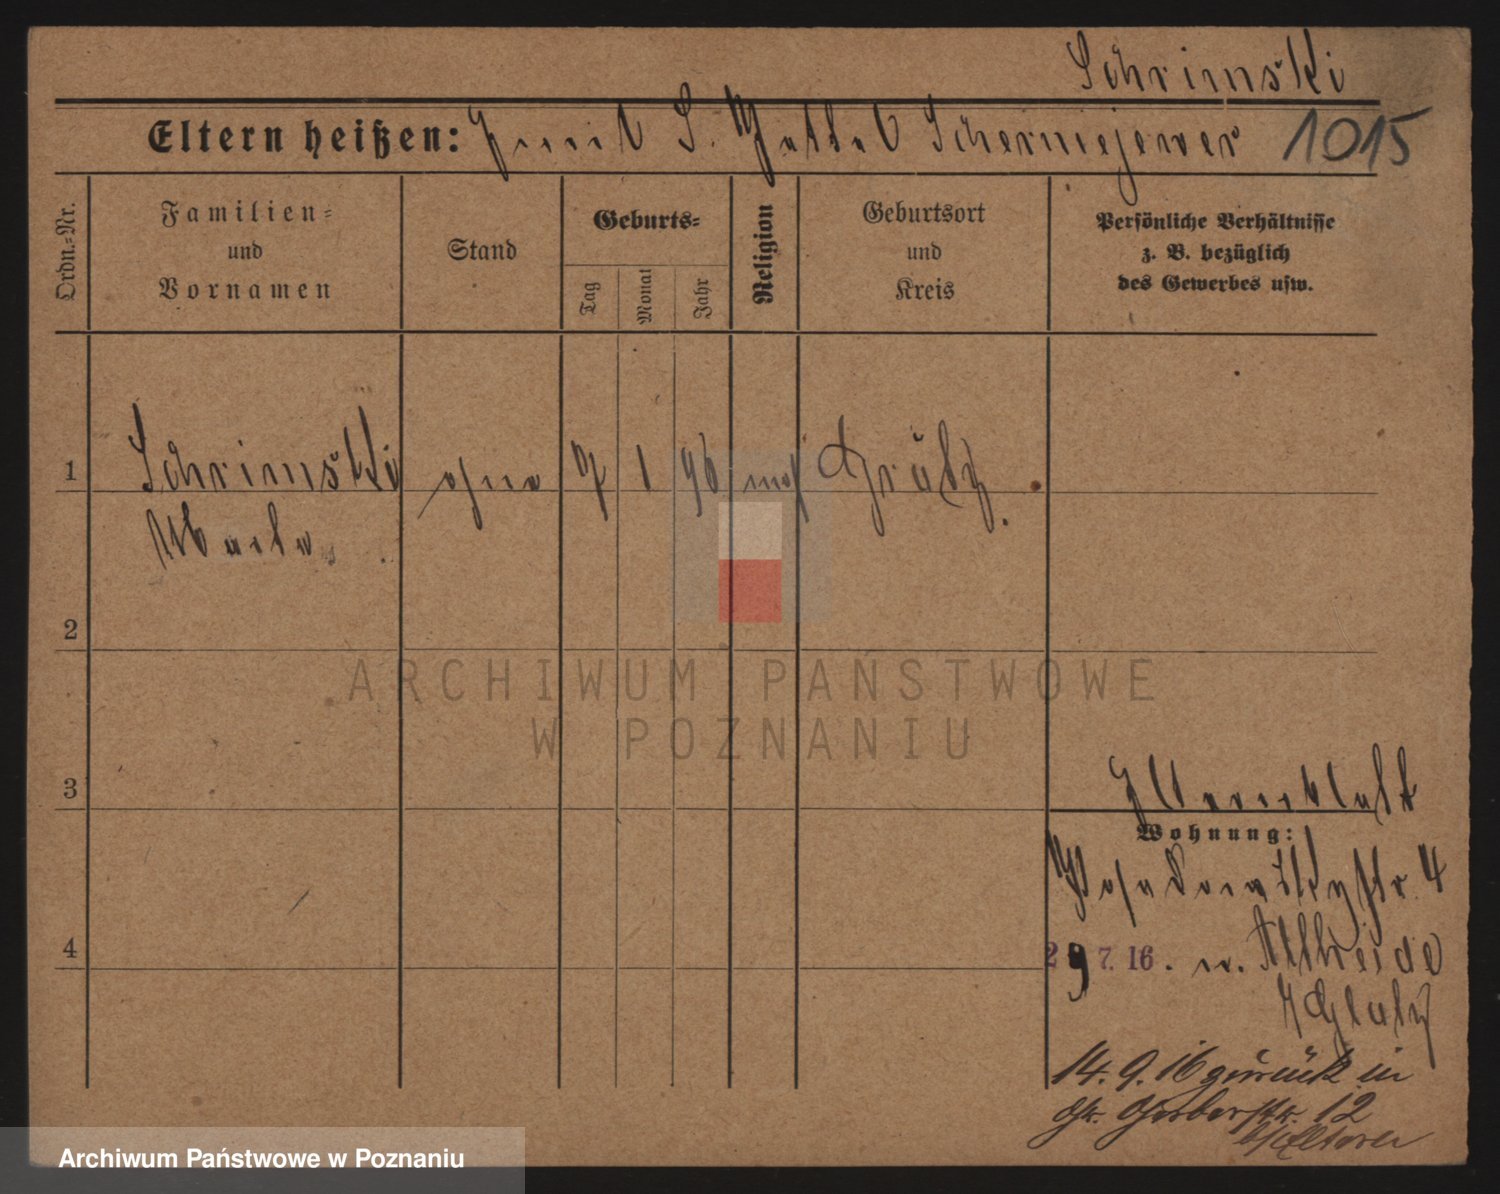 Schrimski
Eltern heißen: Emil S. Scherniejewer 1015
Ordn.=Nr.
Familien=
und
Vornamen
Stand
Geburts=
Tag
Monat
Jahr
Religion
Geburtsort
und
Kreis
Persönliche Verhältnisse
z. B. bezüglich
des Gewerbes usw.
1
Schrimski ohne 7 1 96 mos Grätz
2
3
4
Wohnung:
str. 4
29 7. 16. n. Altheide
Glatz
14. 9. 16 zurück in
Gr. Gerberstr. 12
b/Eltern
ARCHIWUM PAŃSTWOWE
W POZNANIU
Archiwum Państwowe w Poznaniu